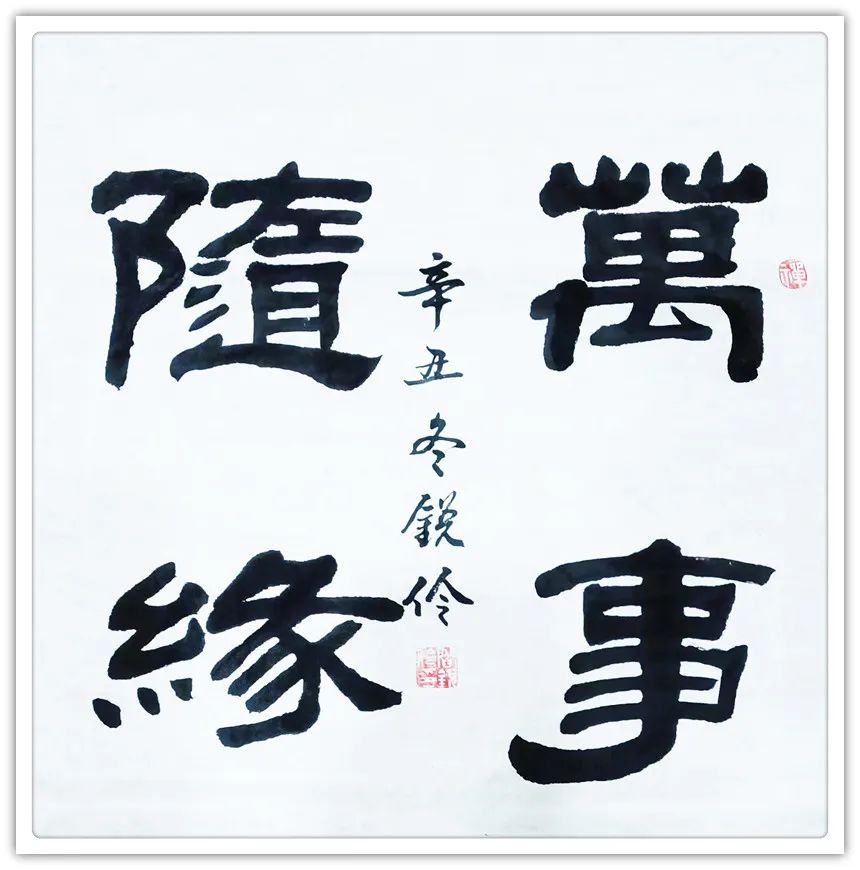 萬事
隨緣
辛丑冬銳伶
禪